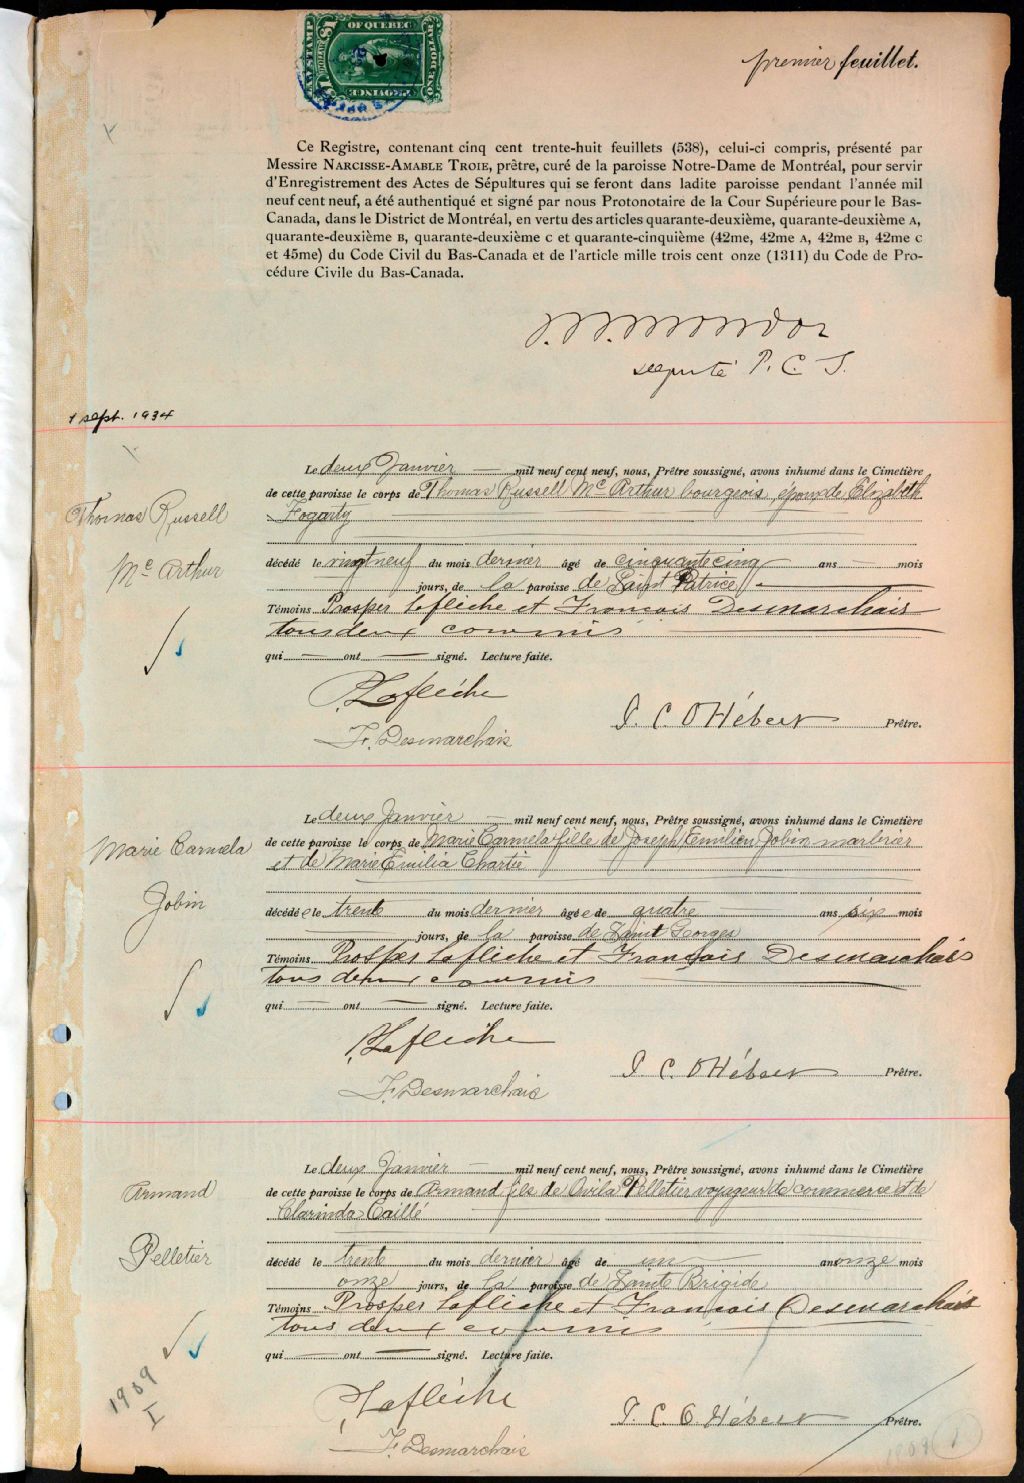 LAW STAMP
OF QUEBEC
$1
DOLLAR
ONE DOLLAR
PROVINCE
premier feuillet.
Ce Registre, contenant cinq cent trente-huit feuillets (538), celui-ci compris, présenté par
Messire NARCISSE-AMABLE TROIE, prêtre, curé de la paroisse Notre-Dame de Montréal, pour servir
d'Enregistrement des Actes de Sépultures qui se feront dans ladite paroisse pendant l'année mil
neuf cent neuf, a été authentiqué et signé par nous Protonotaire de la Cour Supérieure pour le Bas-
Canada, dans le District de Montréal, en vertu des articles quarante-deuxième, quarante-deuxième A,
quarante-deuxième B, quarante-deuxième C et quarante-cinquième (42me, 42me A, 42me B, 42me C
et 45me) du Code Civil du Bas-Canada et de l'article mille trois cent onze (1311) du Code de Pro-
cédure Civile du Bas-Canada.
député P. C. S.
1 sept. 1934
Thomas Russell
Mc Arthur
Le deux Janvier — mil neuf cent neuf, nous, Prêtre soussigné, avons inhumé dans le Cimetière
de cette paroisse le corps de Thomas Russell Mc Arthur bourgeois, époux de Elizabeth
Fogarty
décédé le vingt neuf du mois dernier âgé de cinquante cinq ans — mois
jours, de la paroisse de Saint Patrice
Témoins Prosper Lafleche et Francois Desmarchais
tous deux commis
qui — ont — signé. Lecture faite.
P. Lafléche
F. Desmarchais
P. C. O Hébert Prêtre.
Marie Carmela
Jobin
Le deux Janvier — mil neuf cent neuf, nous, Prêtre soussigné, avons inhumé dans le Cimetière
de cette paroisse le corps de Marie Carmela fille de Joseph Emilien Jobin marbrier
et de Marie Emilia Chartié
décédée le trente du mois dernier âgée de quatre ans six mois
jours, de la paroisse de Saint Georges
Témoins Prosper Lafleche et François Desmarchais
tous deux commis
qui — ont — signé. Lecture faite.
P. Lafleche
F. Desmarchais
P. C. O Hébert Prêtre.
Armand
Pelletier
Le deux Janvier — mil neuf cent neuf, nous, Prêtre soussigné, avons inhumé dans le Cimetière
de cette paroisse le corps de Armand fils de Ovila Pelletier voyageur de commerce et de
Clarinda Caillé
décédé le trente du mois dernier âgé de un ans onze mois
onze jours, de la paroisse de Sainte Brigide
Témoins Prosper Lafleche et Francois Desmarchais
tous deux commis
qui — ont — signé. Lecture faite.
1909
I
P. Lafléche
F. Desmarchais
P. C. O. Hébert Prêtre.
1909 (1)